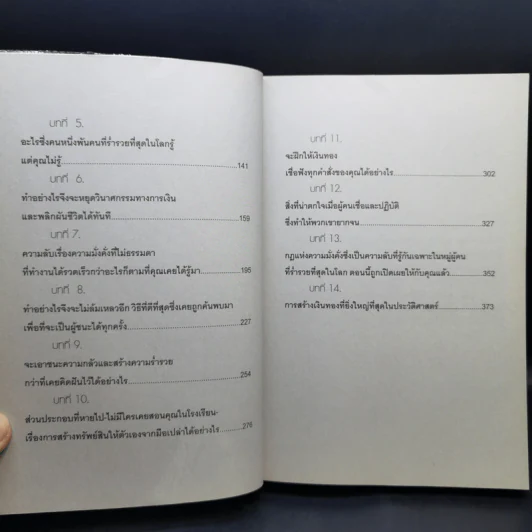 บทที่ 5.
อะไรซึ่งคนหนึ่งพันคนที่ร่ำรวยที่สุดในโลกรู้
แต่คุณไม่รู้ 141
บทที่ 6.
ทำอย่างไรจึงจะหยุดวินาศกรรมทางการเงิน
และพลิกผันชีวิตได้ทันที 159
บทที่ 7.
ความลับเรื่องความมั่งคั่งที่ไม่ธรรมดา
ที่ทำงานได้รวดเร็วกว่าอะไรก็ตามที่คุณเคยได้รู้มา 195
บทที่ 8.
ทำอย่างไรจึงจะไม่ล้มเหลวอีก วิธีที่ดีที่สุดซึ่งเคยถูกค้นพบมา
เพื่อที่จะเป็นผู้ชนะได้ทุกครั้ง 227
บทที่ 9.
จะเอาชนะความกลัวและสร้างความร่ำรวย
กว่าที่เคยคิดฝันไว้ได้อย่างไร 254
บทที่ 10.
ส่วนประกอบที่หายไป-ไม่มีใครเคยสอนคุณในโรงเรียน-
เรื่องการสร้างทรัพย์สินให้ตัวเองจากมือเปล่าได้อย่างไร 276
บทที่ 11.
จะฝึกให้เงินทอง
เชื่อฟังทุกคำสั่งของคุณได้อย่างไร 302
บทที่ 12.
สิ่งที่น่าตกใจเมื่อผู้คนเชื่อและปฏิบัติ
ซึ่งทำให้พวกเขายากจน 327
บทที่ 13.
กฎแห่งความมั่งคั่งซึ่งเป็นความลับที่รู้กันเฉพาะในหมู่ผู้คน
ที่ร่ำรวยที่สุดในโลก ตอนนี้ถูกเปิดเผยให้กับคุณแล้ว 352
บทที่ 14.
การสร้างเงินทองที่ยิ่งใหญ่ที่สุดในประวัติศาสตร์ 373